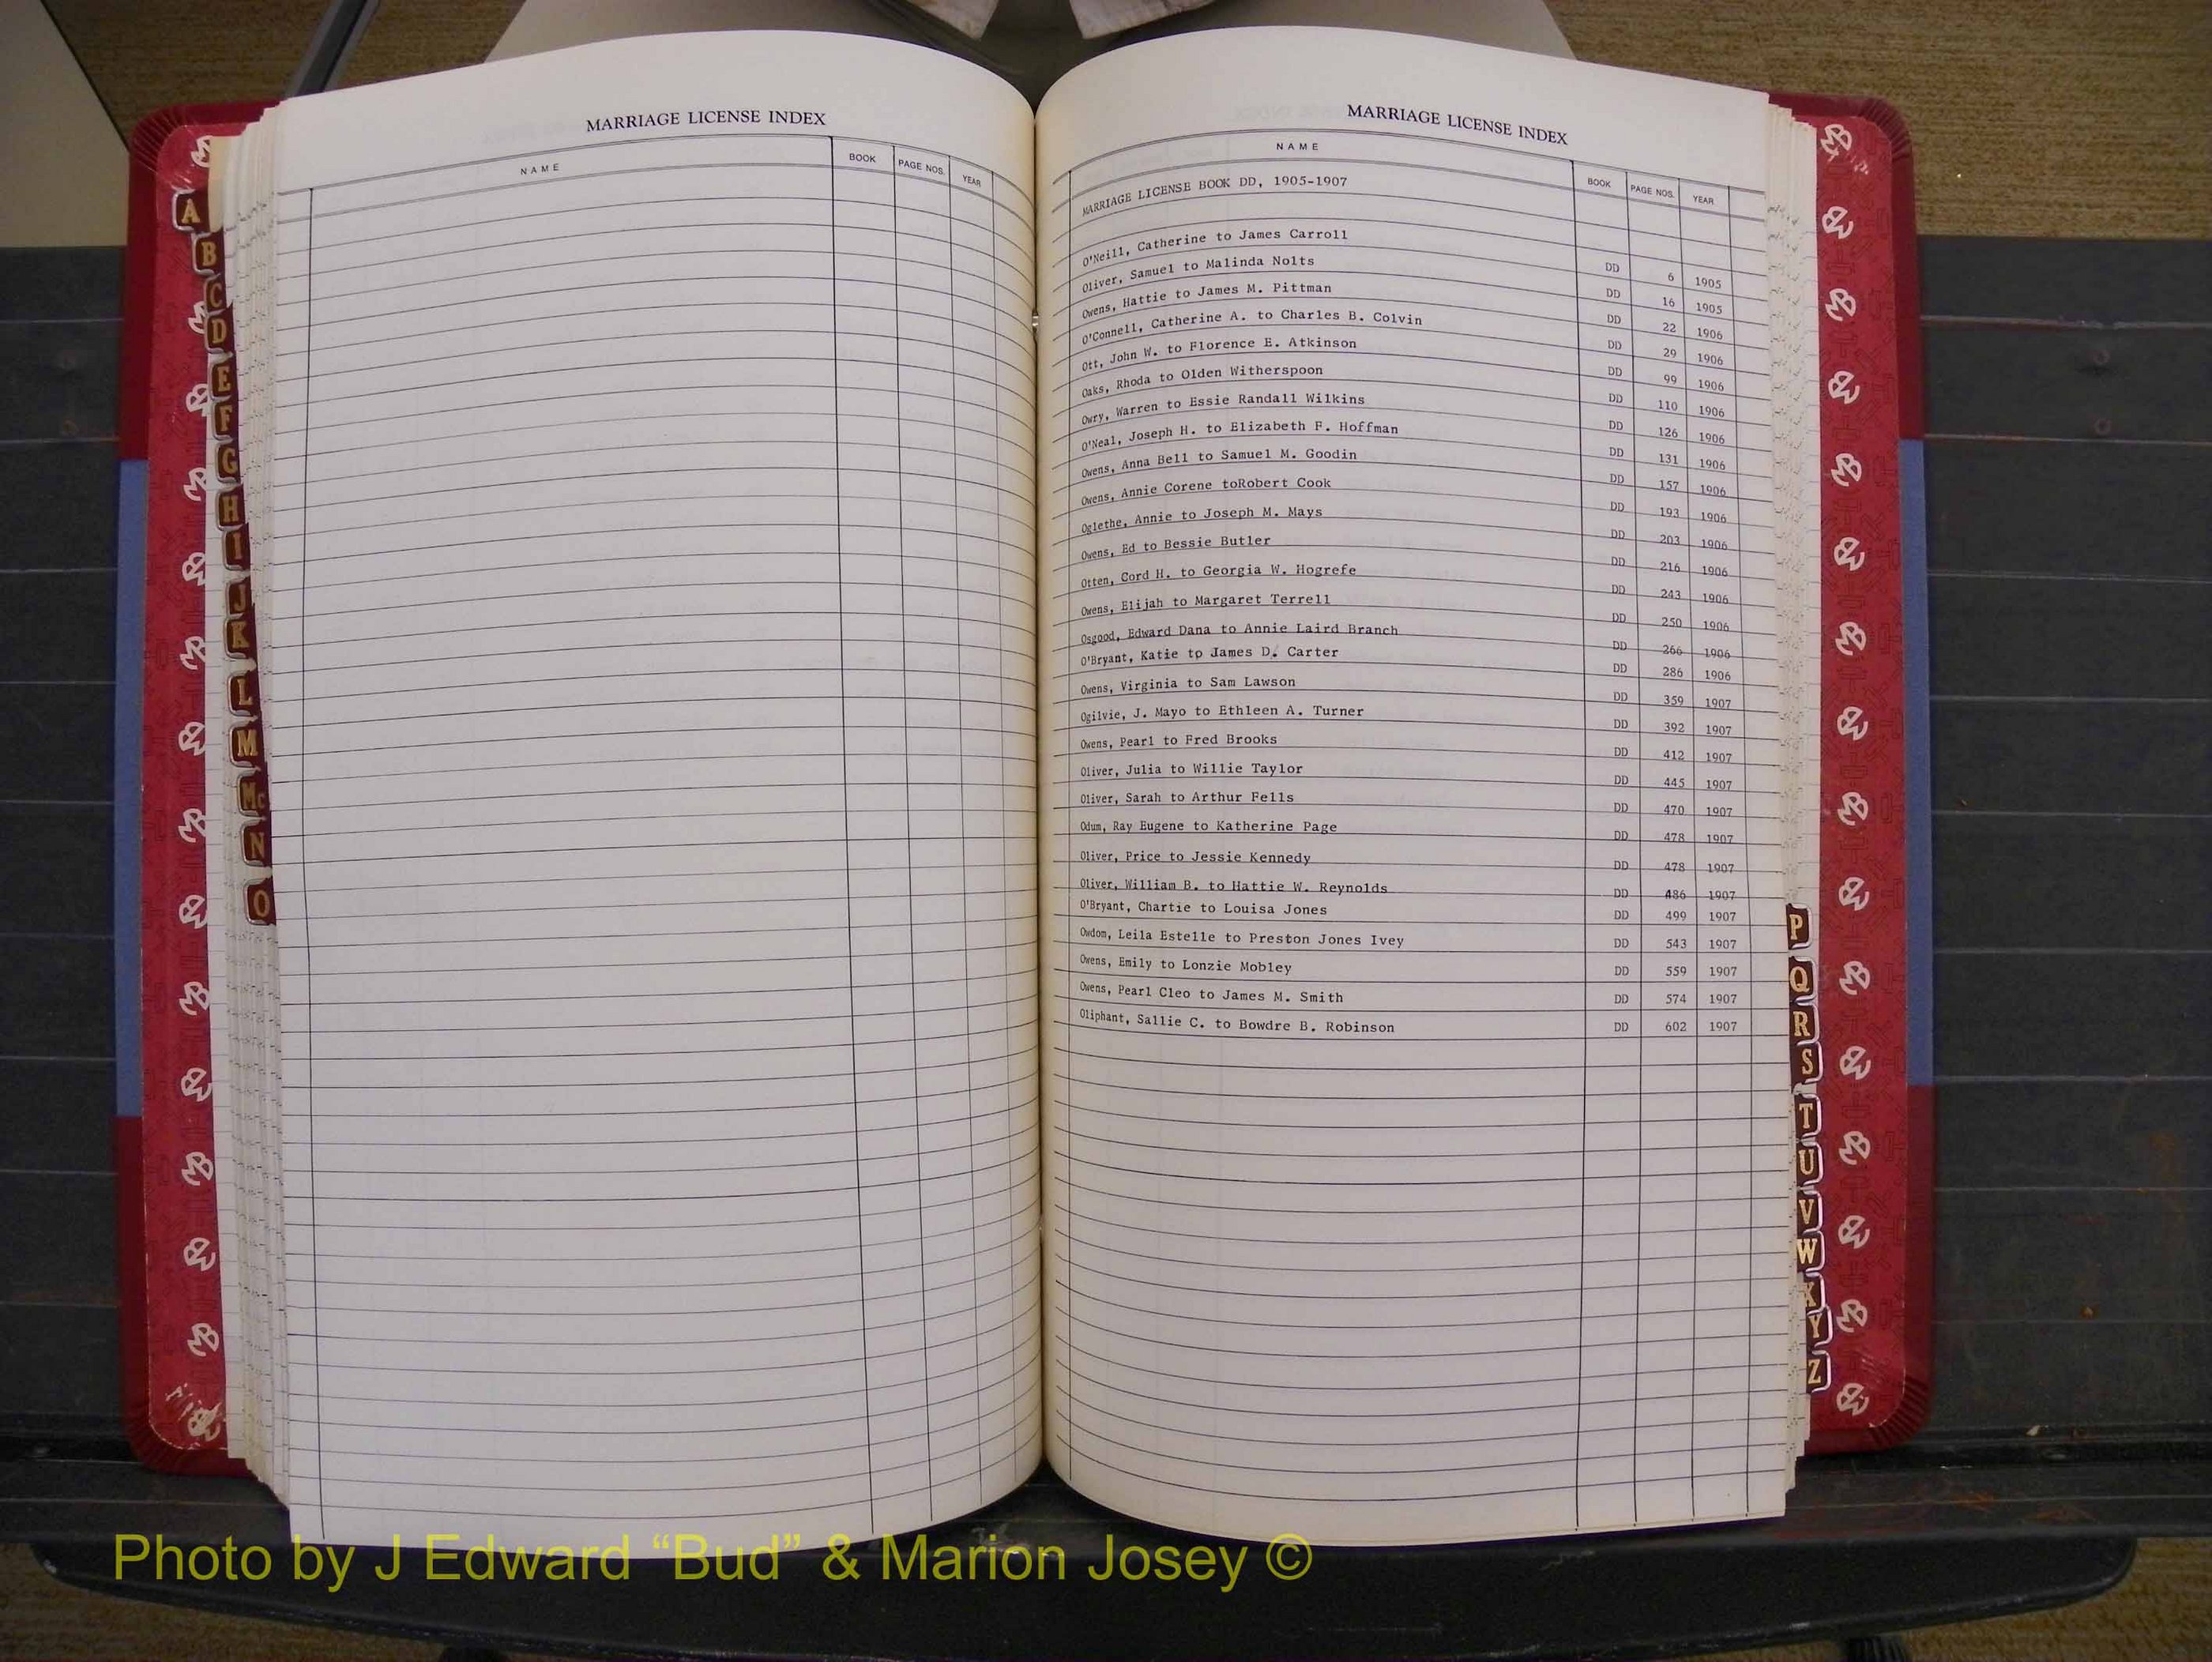 MARRIAGE LICENSE INDEX
NAME BOOK PAGE NOS. YEAR
A
B
C
D
E
F
G
H
I
J
K
L
M
Mc
N
O
MARRIAGE LICENSE INDEX
NAME BOOK PAGE NOS. YEAR
MARRIAGE LICENSE BOOK DD, 1905-1907
O'Neill, Catherine to James Carroll DD 6 1905
Oliver, Samuel to Malinda Nolts DD 16 1905
Owens, Hattie to James M. Pittman DD 22 1906
O'Connell, Catherine A. to Charles B. Colvin DD 29 1906
Ott, John W. to Florence E. Atkinson DD 99 1906
Oaks, Rhoda to Olden Witherspoon DD 110 1906
Owry, Warren to Essie Randall Wilkins DD 126 1906
O'Neal, Joseph H. to Elizabeth F. Hoffman DD 131 1906
Owens, Anna Bell to Samuel M. Goodin DD 157 1906
Owens, Annie Corene toRobert Cook DD 193 1906
Oglethe, Annie to Joseph M. Mays DD 203 1906
Owens, Ed to Bessie Butler DD 216 1906
Otten, Cord H. to Georgia W. Hogrefe DD 243 1906
Owens, Elijah to Margaret Terrell DD 250 1906
Osgood, Edward Dana to Annie Laird Branch DD 266 1906
O'Bryant, Katie to James D. Carter DD 286 1906
Owens, Virginia to Sam Lawson DD 359 1907
Ogilvie, J. Mayo to Ethleen A. Turner DD 392 1907
Owens, Pearl to Fred Brooks DD 412 1907
Oliver, Julia to Willie Taylor DD 445 1907
Oliver, Sarah to Arthur Fells DD 470 1907
Odum, Ray Eugene to Katherine Page DD 478 1907
Oliver, Price to Jessie Kennedy DD 478 1907
Oliver, William B. to Hattie W. Reynolds DD 486 1907
O'Bryant, Chartie to Louisa Jones DD 499 1907
Owdom, Leila Estelle to Preston Jones Ivey DD 543 1907
Owens, Emily to Lonzie Mobley DD 559 1907
Owens, Pearl Cleo to James M. Smith DD 574 1907
Oliphant, Sallie C. to Bowdre B. Robinson DD 602 1907
P
Q
R
S
T
U
V
W
X
Y
Z
Photo by J Edward “Bud” & Marion Josey ©